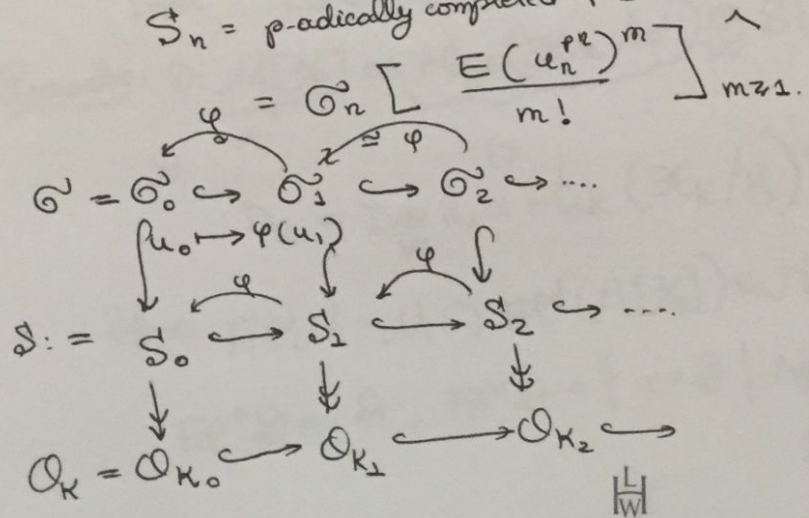 S_n = p-adically complete
= 𝔖_n [ E(u_n^{p^n})^m / m! ]^_{m≥1}.
φ ≅ φ
𝔖 = 𝔖_0 ↪ 𝔖_1 ↪ 𝔖_2 ↪ ....
u_0 ↦ φ(u_1)
φ φ
S := S_0 ↪ S_1 ↪ S_2 ↪ ....
O_K = O_{K_0} ↪ O_{K_1} ↪ O_{K_2} ↪
L
H
W